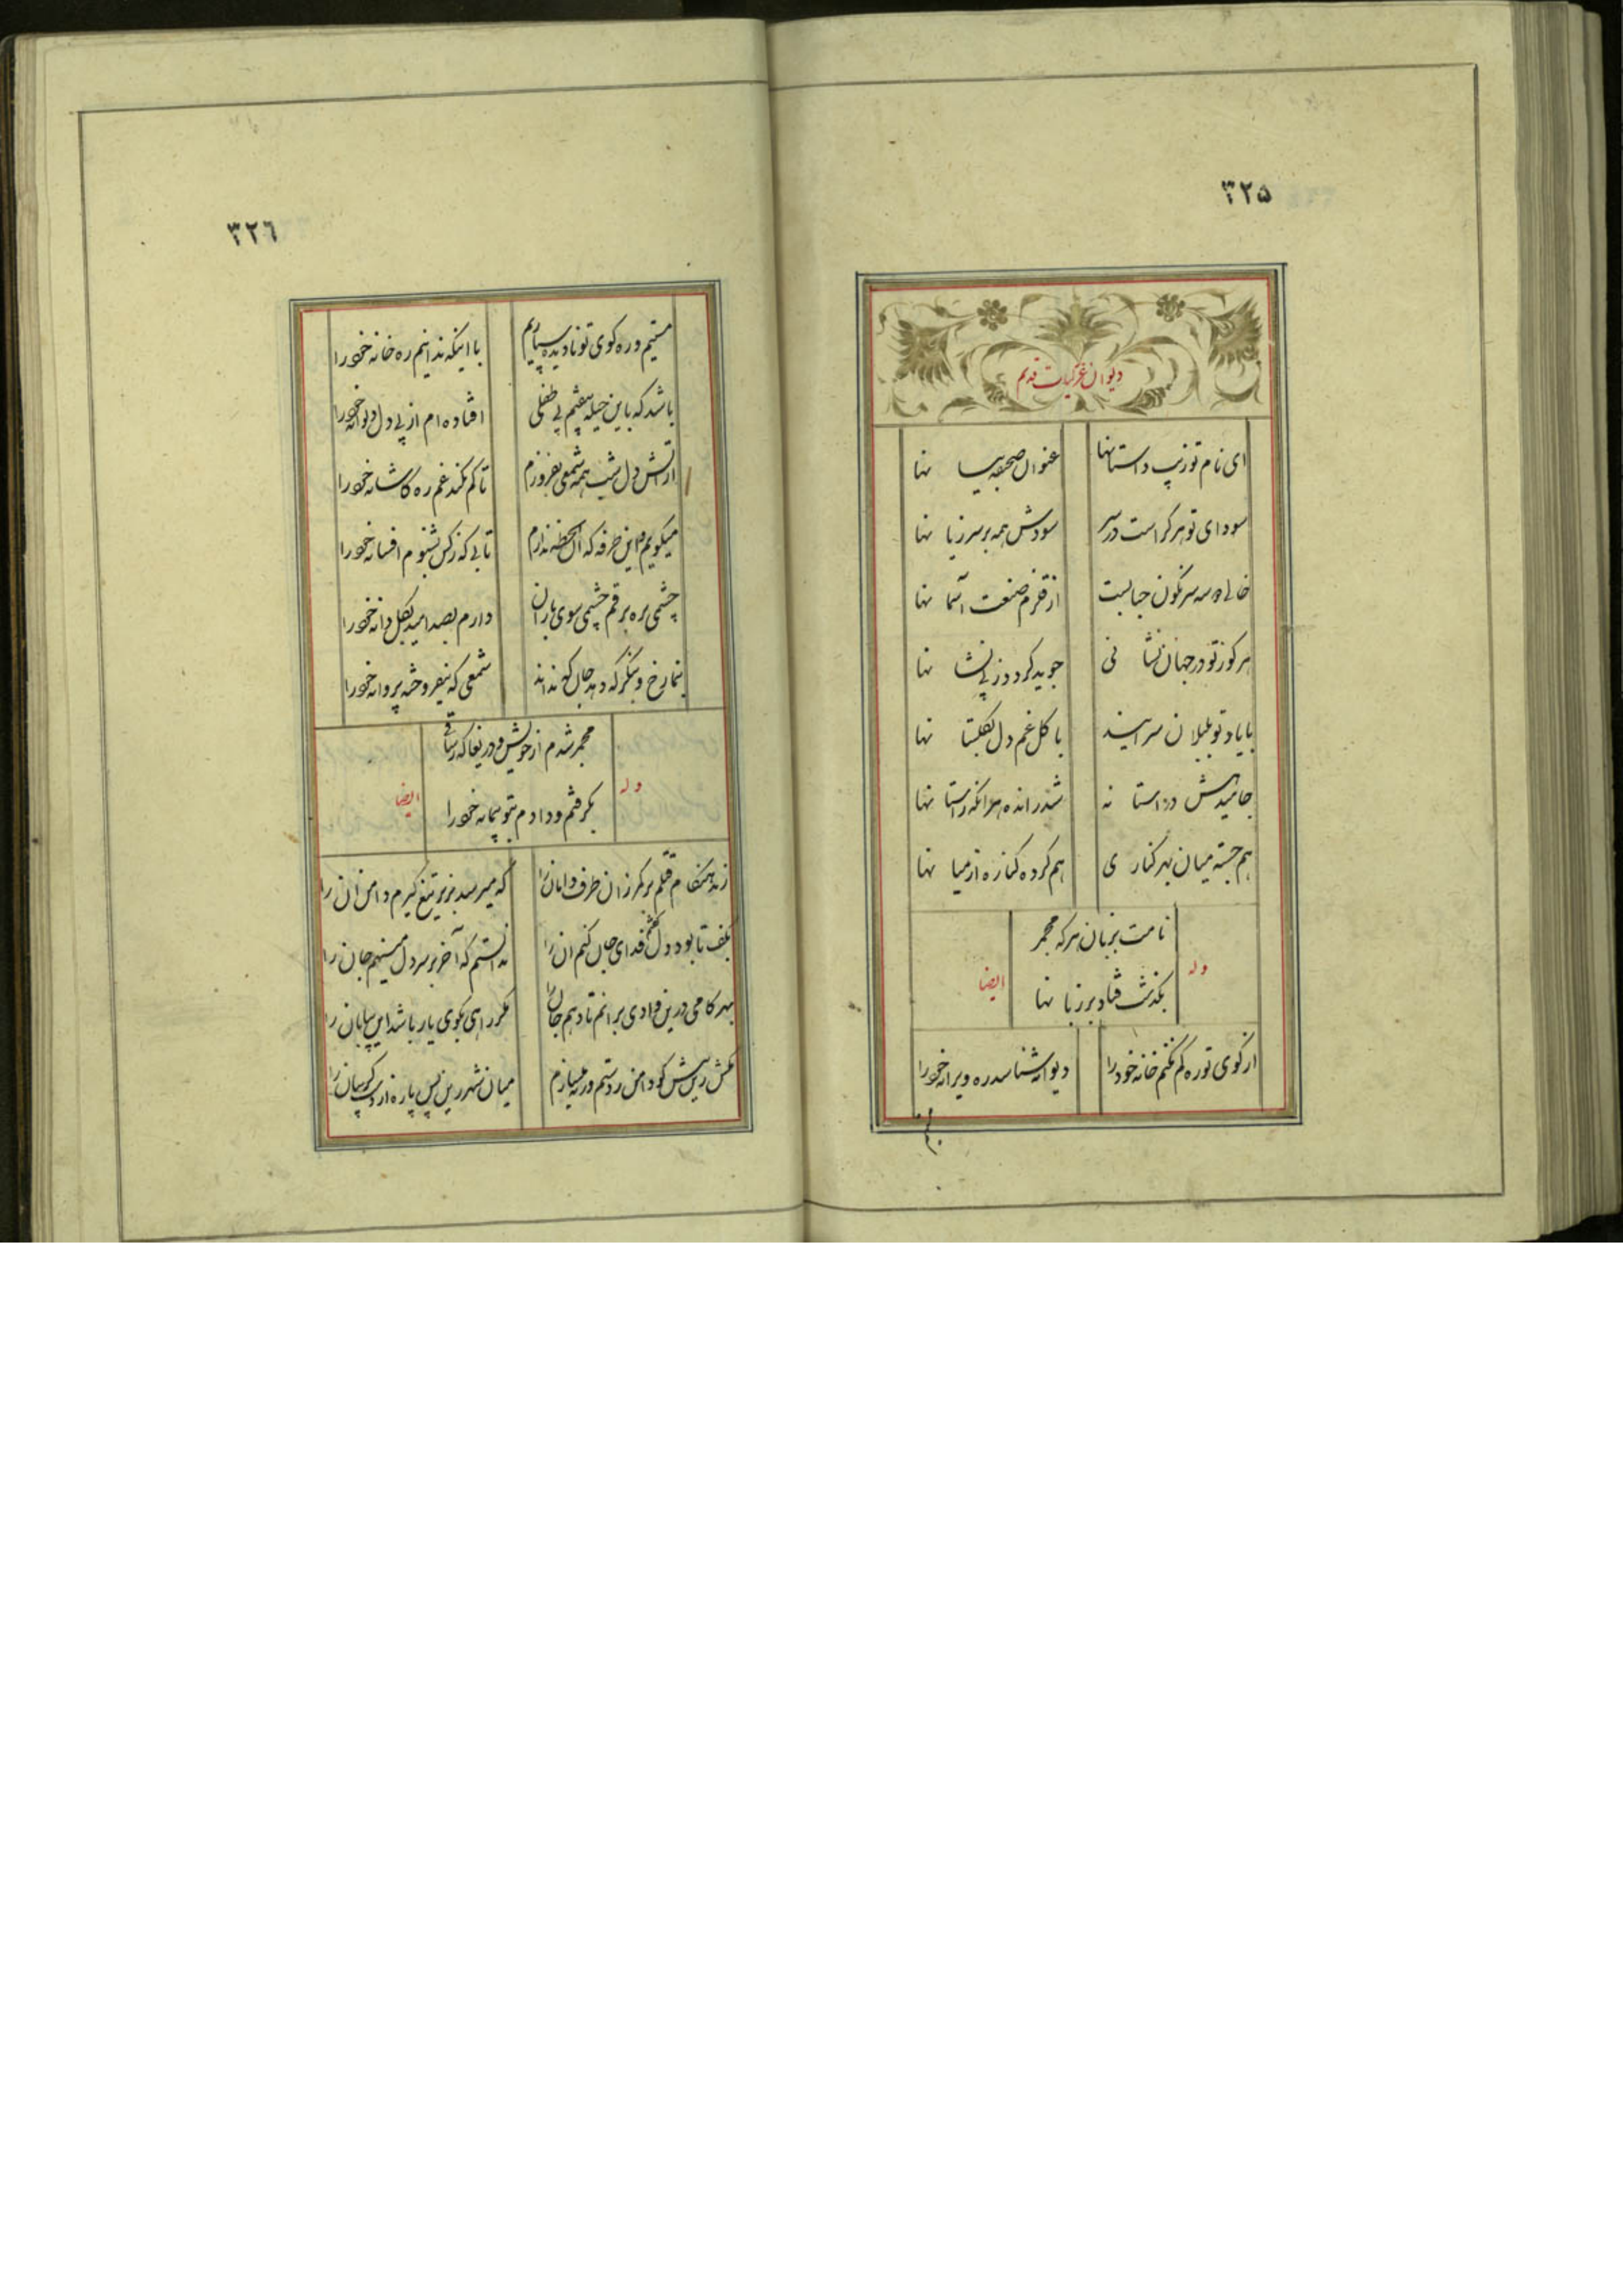 ۳۲۵
دیوان غزلیات قدیم
ای نام تو زیب داستانها عنوان صحیفه بیانها
سودای تو هر کراست در سر سودش همه بر سر زیانها
سرنگون حبابیست از قلزم صنعت آسمانها
هر کو ز تو در جهان نشانی جوید گردد ز بی نشانها
با یاد تو بلبلان سرایند با گل غم دل بگلستانها
در آستانه شد رانده هر آنکه ز آستانها
هم جسته میان بهر کناری هم کرده کناره از میانها
وله
نامت بزبان هر که مجمر
بگذشت فتاد بر زبانها
ایضا
از کوی تو ره گم نکنم خانه خود را دیوانه شناسد ره ویرانه خود را
۳۲٦
مستیم و ره کوی تو نادیده سپاریم با اینکه ندانیم ره خانه خود را
باشد که باین حیله بیفتم پی طفلی افتاده ام از پی دل دیوانه خود را
از آتش دل شب همه شمعی بفروزم تا گم نکند غم ره کاشانه خود را
میگویم و این طرفه که آن لحظه ندارم تابی که ز کس بشنوم افسانه خود را
چشمی بره برقم و چشمی سوی باران دارم بصد امید بگل دانه خود را
بنما رخ و بنگر که دهد جان که نداند شمعی که نیفروخته پروانه خود را
وله
مجمر شدم از خویش و دریغا که ز ساقی
بگرفتم و دادم بتو پیمانه خود را
ایضا
زند هنگام قتلم بر کمر زان طرف دامان را که میرسد بزیر تیغ گیرم دامن آن را
بکف تا بود دل گفتم فدای جان کنم آن را ندانستم که آخر بر سر دل مینهم جان را
بهر گامی درین وادی برآنم تا دهم جان را مگر راهی بکوی یار باشد این بیابان را
مکش زین بیش گو دامن ز دستم ورنه میسازم میان شهر زین پس پاره از دستت گریبان را